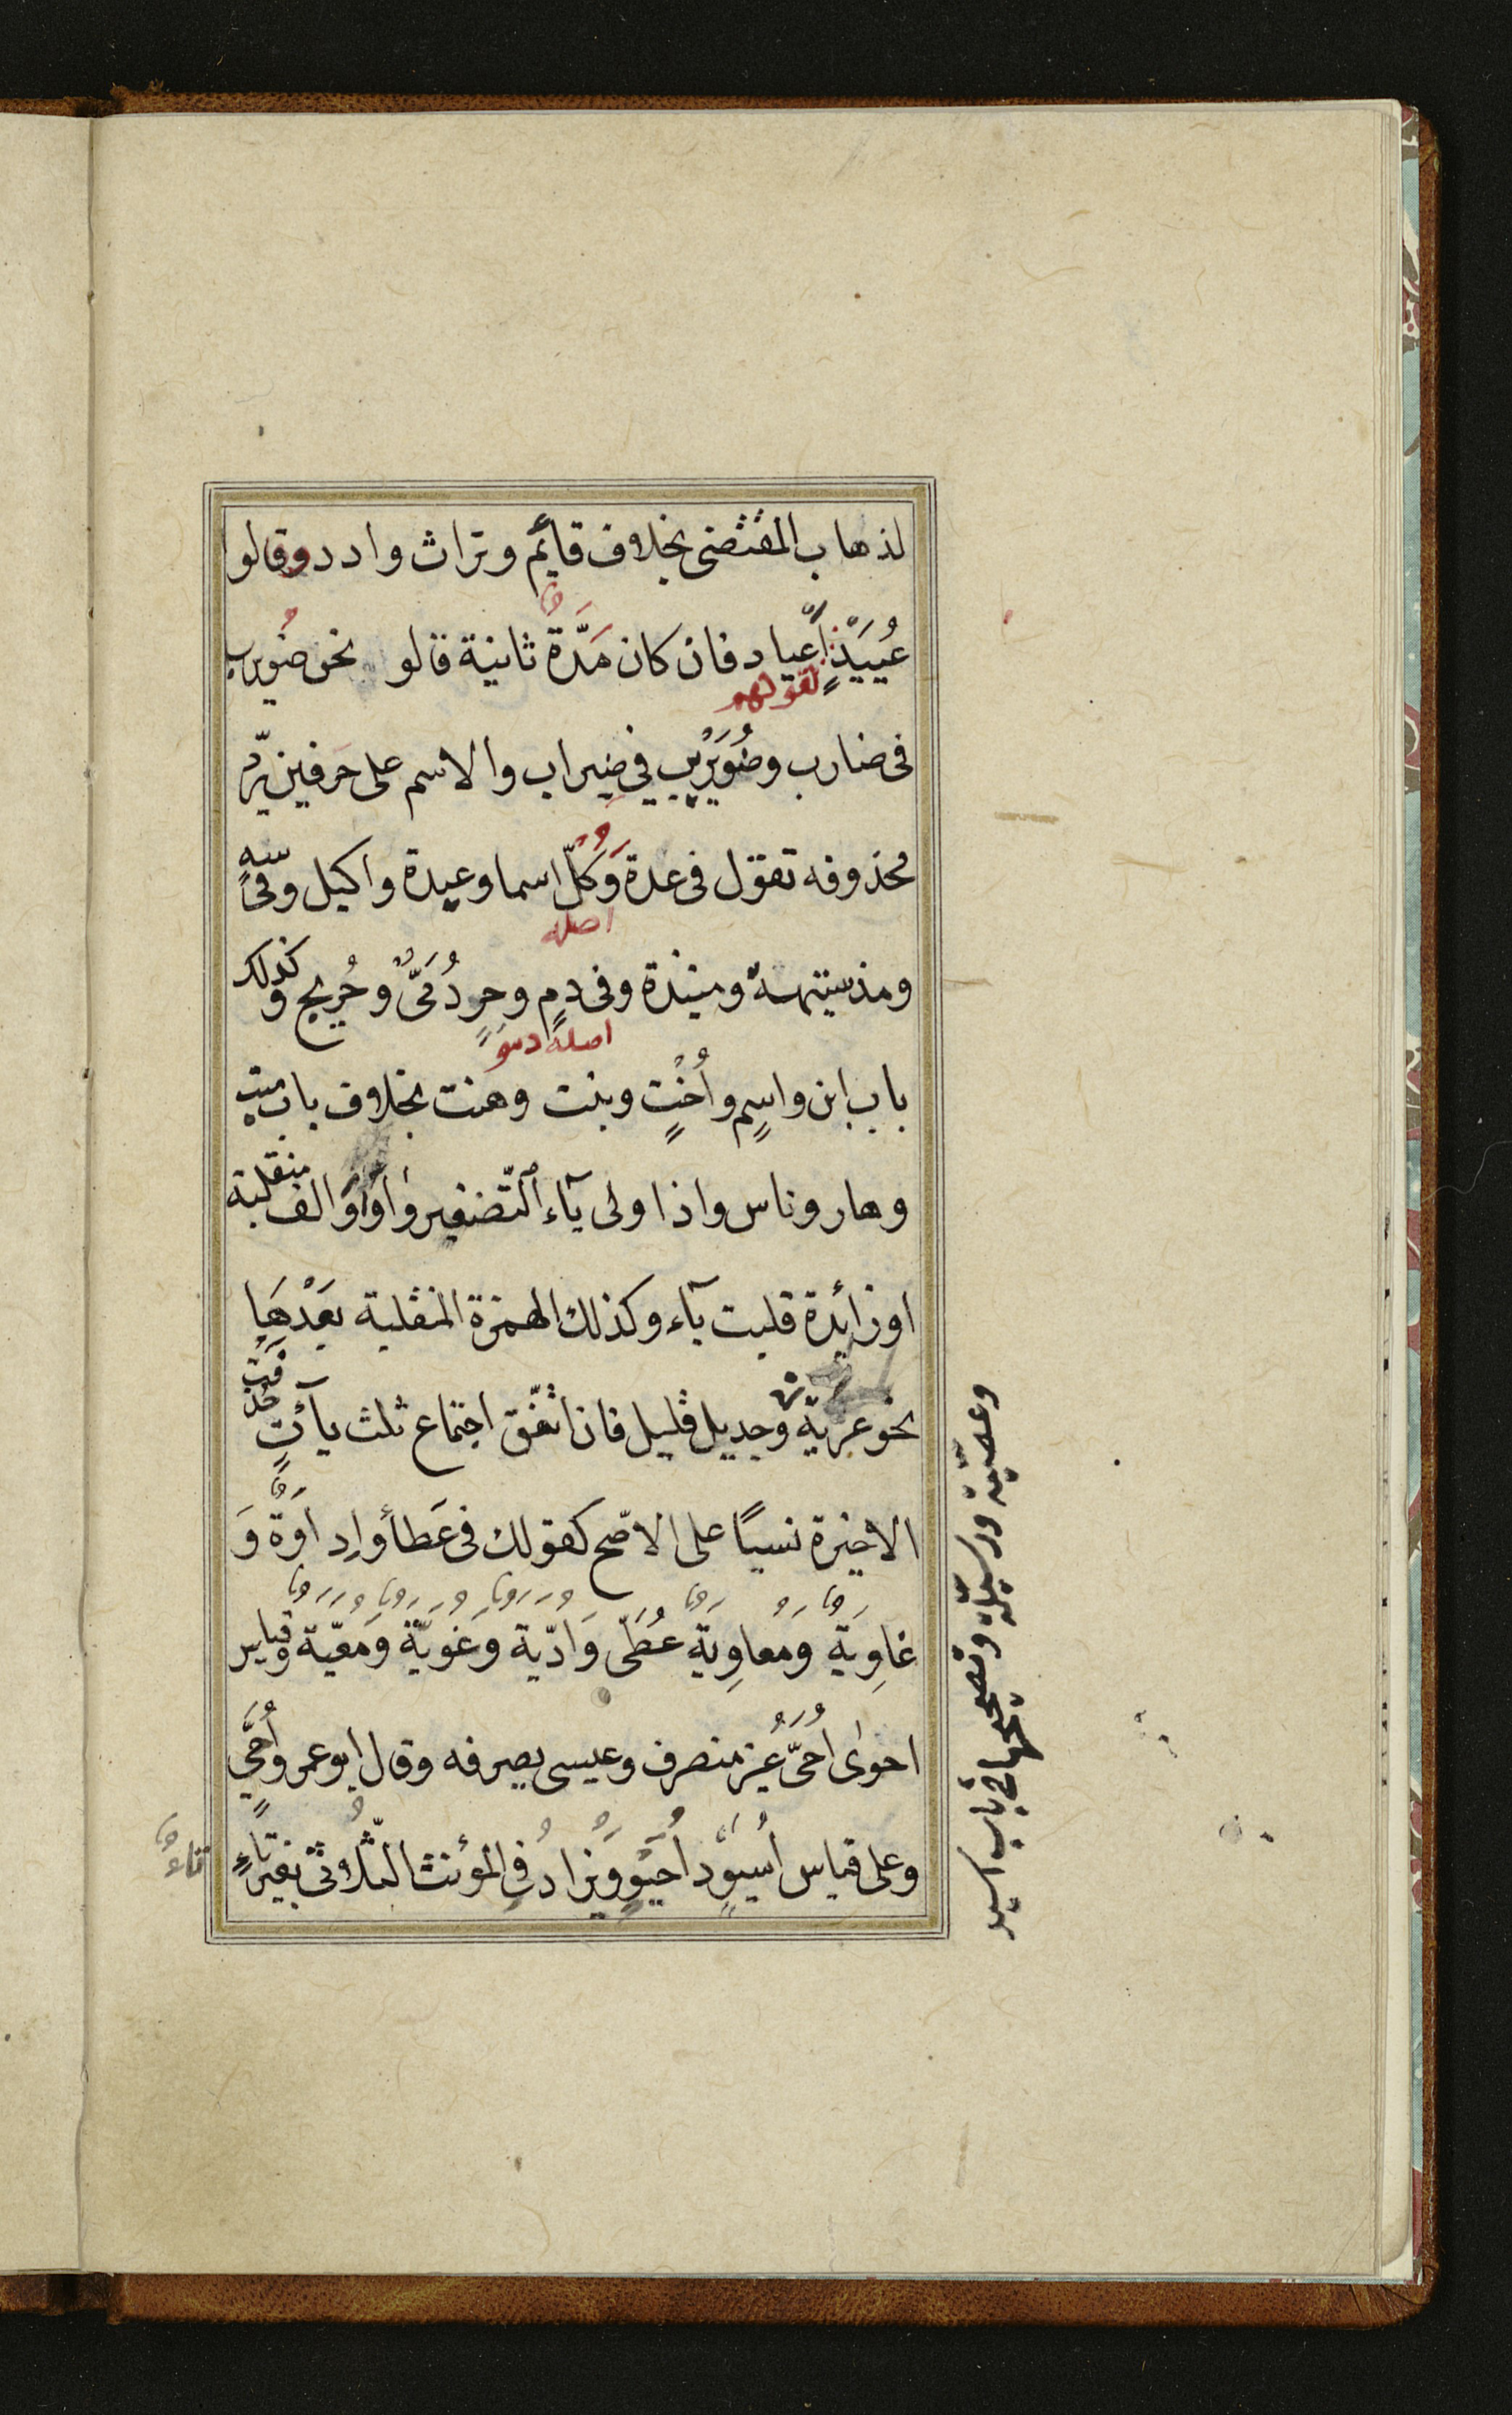 لذهاب المقتضى بخلاف قائم وتراث وادد وقالو
عُيَيْدٌ اَعياد فان كان مَدَّةٌ ثانية قالو نحو ضُويرب
لقولهم
فى ضارب وضُوَيْرِيْب في ضيراب والاسم على حَرفين يردّ
محذوفه تقول فى عدة وَكُلْ اسما وعيدة واكيل وفى سهٍ
اصله
ومذ ستيهة ومنيذة وفى دمٍ وحرٍ دُمَىٌّ وحُريح وكذلك
اصله دمو
باب ابن واسمٍ واُخْتٍ وبنت وهنت بخلاف باب ميت
وهار وناس واذا ولى ياَء التّصغير واوٌ او الف منقلبة
او زائدة قلبت ياَء وكذلك الهمزة المنقلبة بَعْدهَا
نحو عرية وجديل قليل فان اتّفق اجتماع ثلث ياآتٍ حذفت
الاخيرة نسيًا على الاصّح كقولك فى عَطاَء واِداوَةٌ وَ
غاوِيَة وَمُعاوِيَة عُطَىّ وَاُدَيّة وَغُوَيّة وَمُعَيّة وقياس
احوٰى اُحَىّ غَيْر منصرف وعيسى يصرفه وقال ابو عمرو اُحَىٍّ
وعلى قياس اُسَيْوِد اُحَيْوٍ وَيُزادُ فِى المؤنث الثّلاثى بغير تاءٍ
تاءٌ
وعصيّة ورسيّلة وتصحيحها في باب اسيد